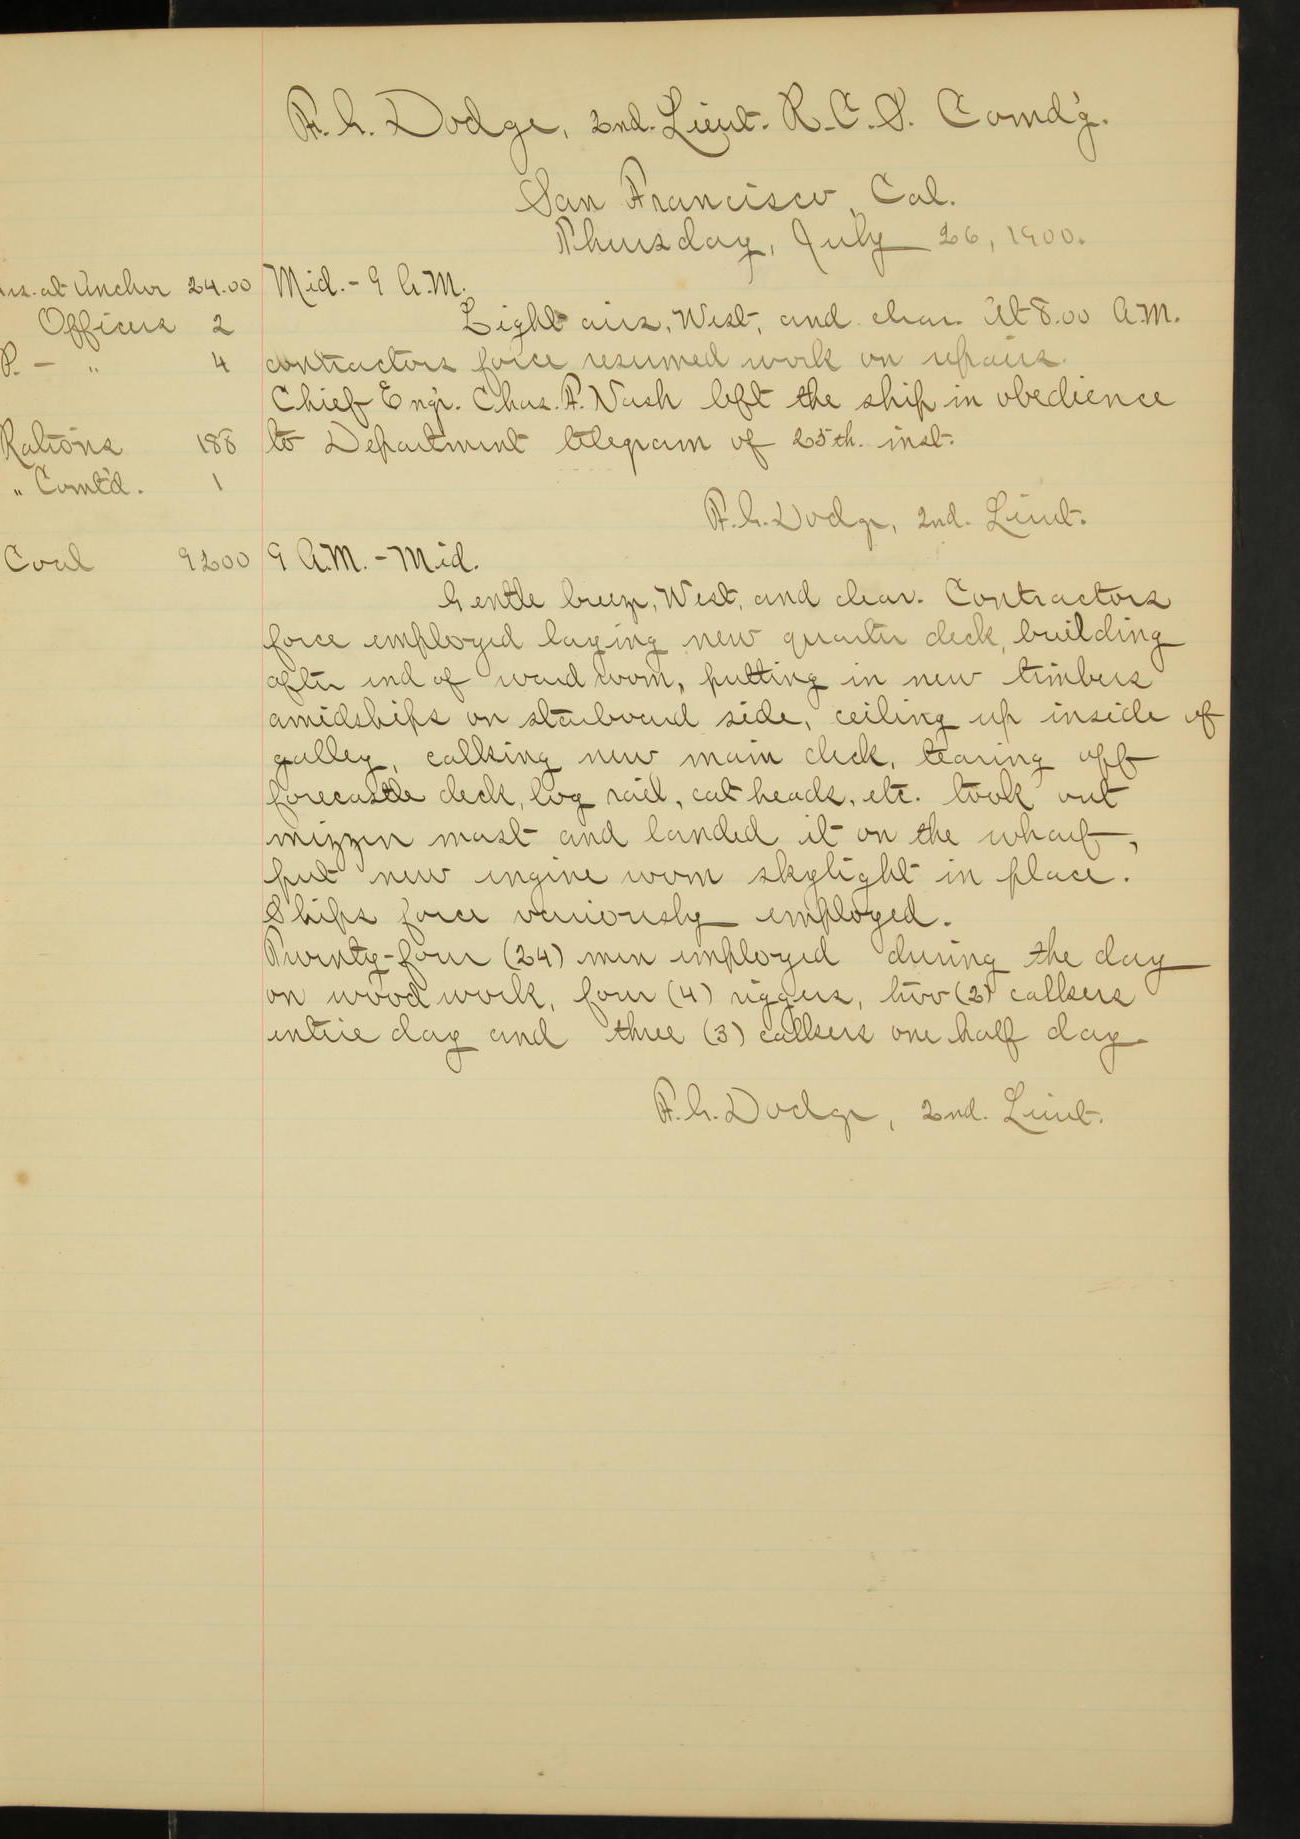 F. G. Dodge, 2nd. Lieut. R.C.S. Comd'g.
San Francisco, Cal.
Thursday, July 26, 1900.
Mid. - 9 A.M.
at Anchor 24.00
Light airs, West, and clear. At 8.00 A.M.
Officers 2
contractors force resumed work on repairs.
P. - " 4
Chief Eng'r. Chas. A. Nash left the ship in obedience
to Department telegram of 25th. inst.
Rations 188
" Comt'd. 1
F. G. Dodge, 2nd. Lieut.
Coal 9200
9 A.M. - Mid.
Gentle breeze, West, and clear. Contractors
force employed laying new quarter deck, building
after end of ward room, putting in new timbers
amidships on starboard side, ceiling up inside of
galley, calking new main deck, tearing off
forecastle deck, log rail, cat heads, etc. took out
mizzen mast and landed it on the wharf,
put new engine room skylight in place.
Ships force variously employed.
Twenty-four (24) men employed during the day
on wood work, four (4) riggers, two (2) calkers
entire day and three (3) calkers one half day.
F. G. Dodge, 2nd. Lieut.